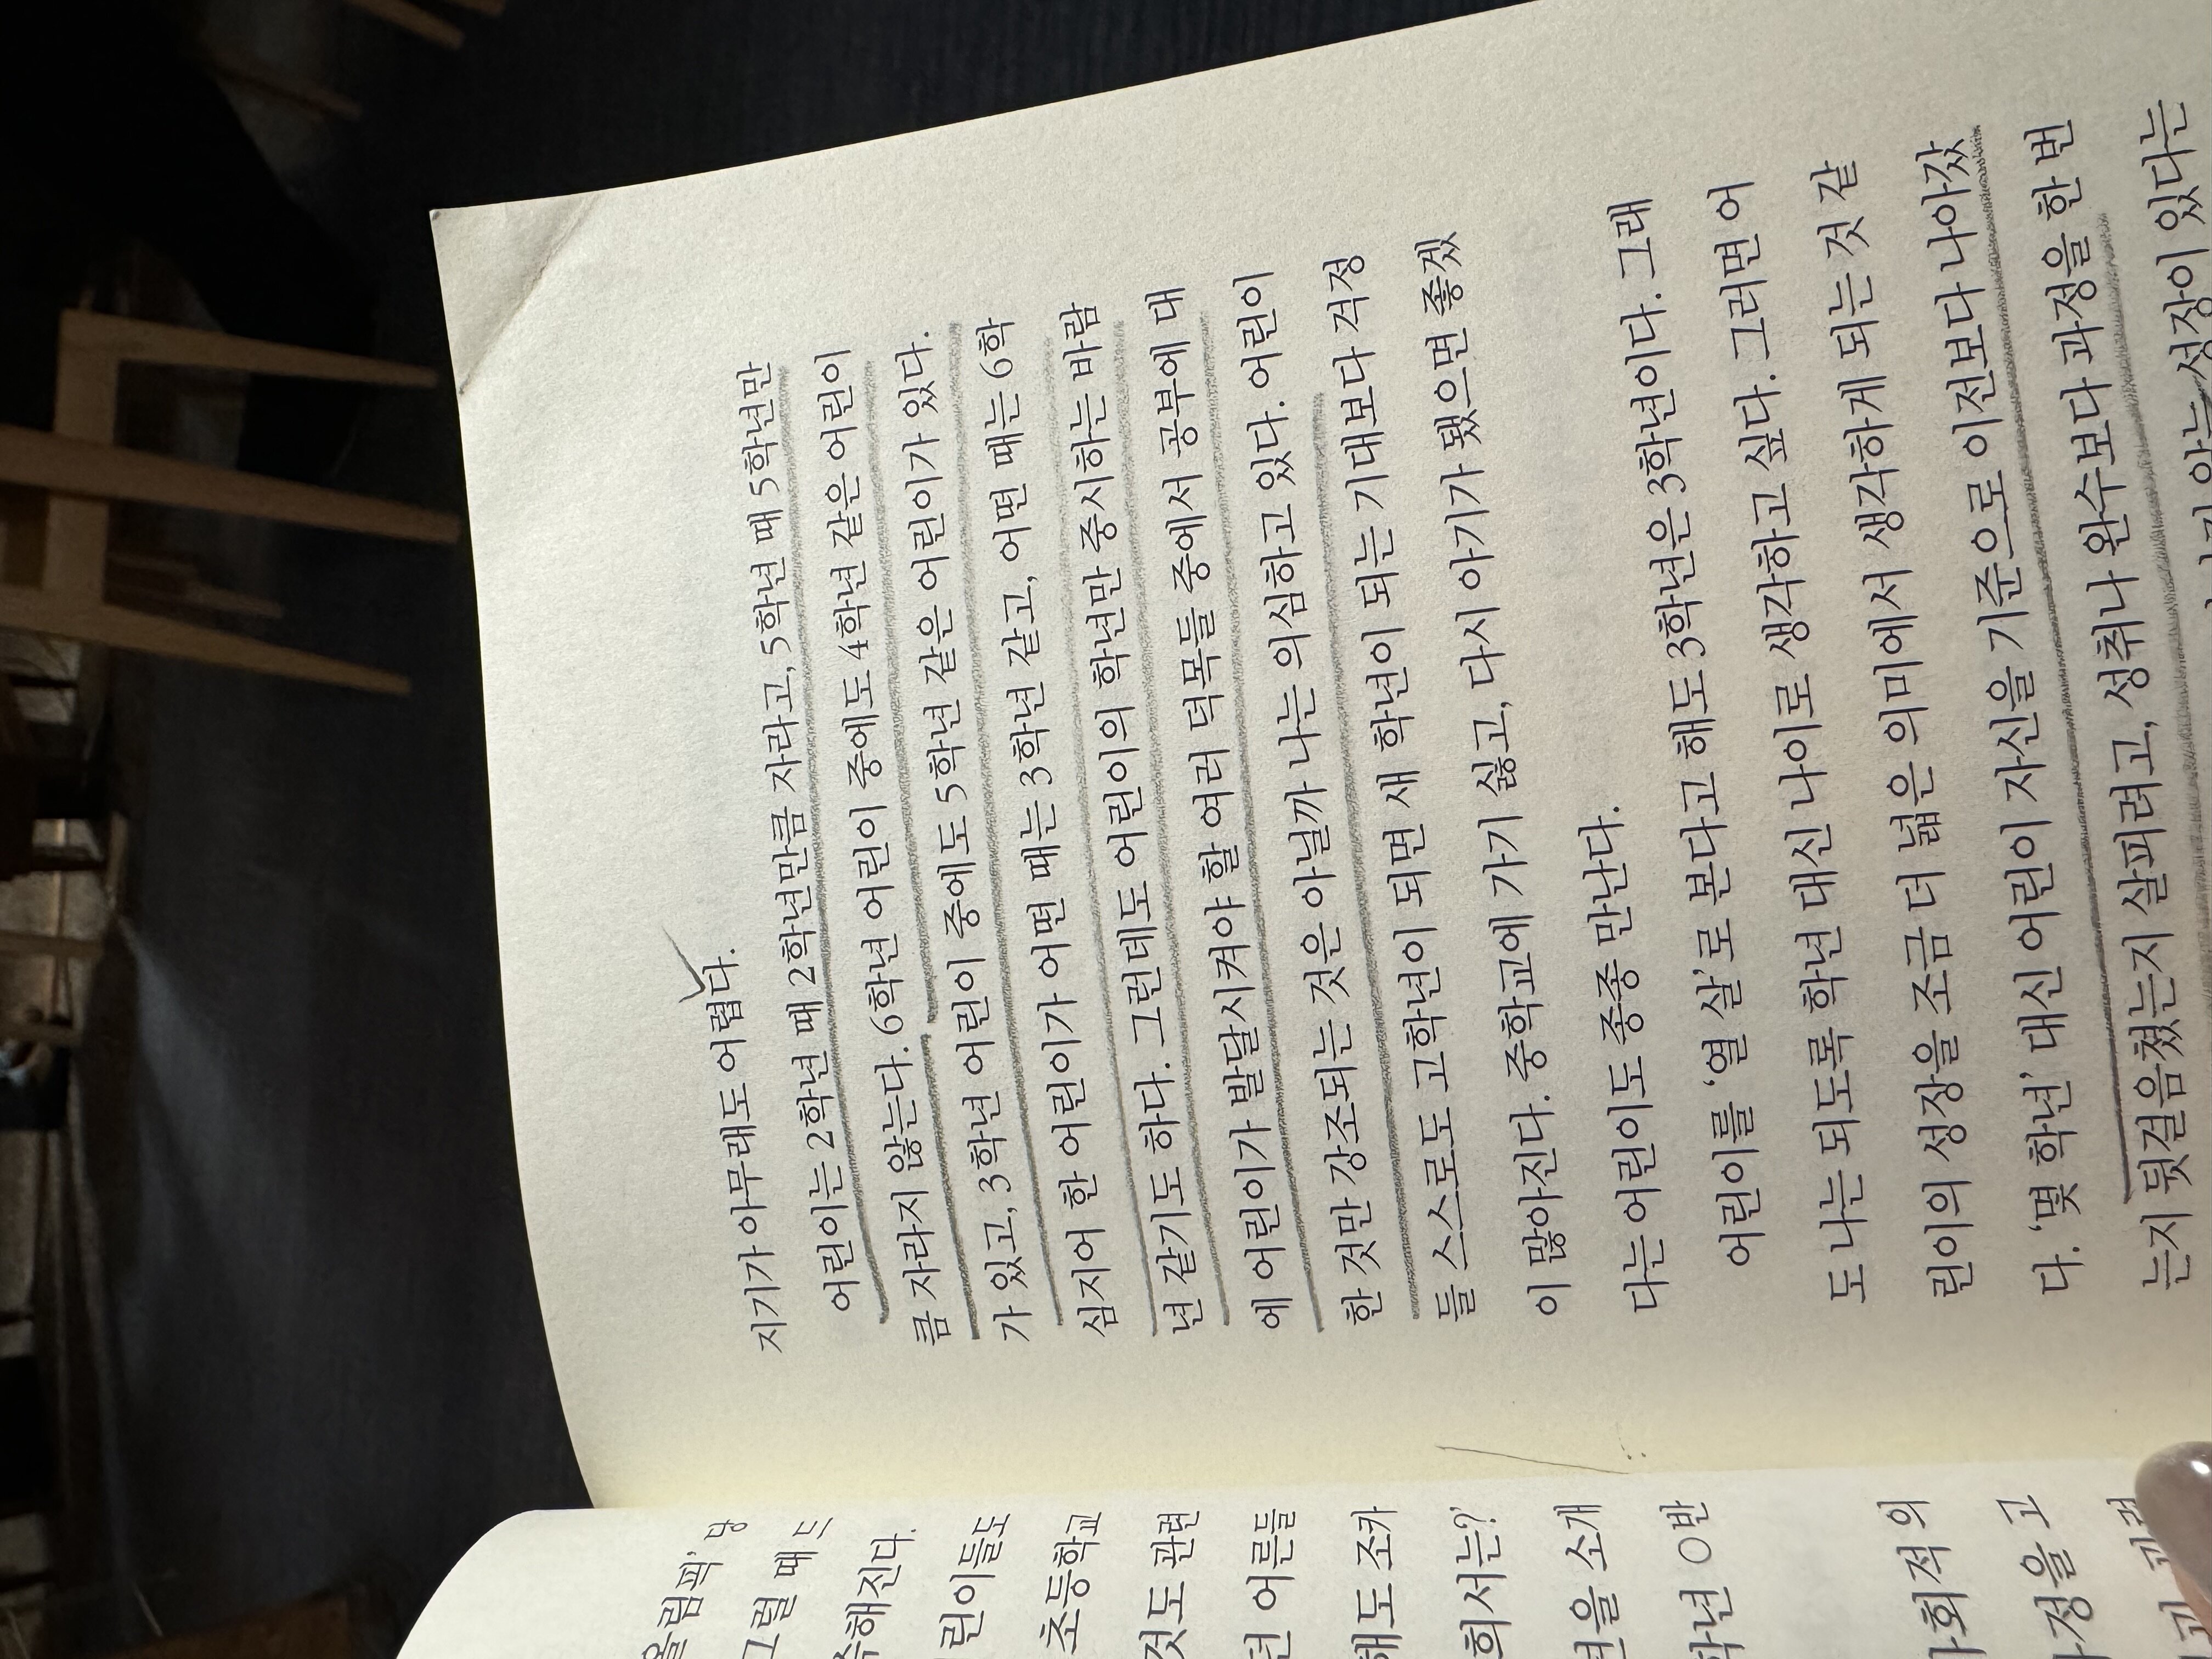 올림픽’
그럴 때
해진다.
린이들도
초등학교
것도 관련
년 어른들
해도 조카
회서는?’
년을 소개
학년 ○반
사회적 의
과정을 고
지기가 아무래도 어렵다.
어린이는 2학년 때 2학년만큼 자라고, 5학년 때 5학년만
큼 자라지 않는다. 6학년 어린이 중에도 4학년 같은 어린이
가 있고, 3학년 어린이 중에도 5학년 같은 어린이가 있다.
심지어 한 어린이가 어떤 때는 3학년 같고, 어떤 때는 6학
년 같기도 하다. 그런데도 어린이의 학년만 중시하는 바람
에 어린이가 발달시켜야 할 여러 덕목들 중에서 공부에 대
한 것만 강조되는 것은 아닐까 나는 의심하고 있다. 어린이
들 스스로도 고학년이 되면 새 학년이 되는 기대보다 걱정
이 많아진다. 중학교에 가기 싫고, 다시 아기가 됐으면 좋겠
다는 어린이도 종종 만난다.
어린이를 ‘열 살’로 본다고 해도 3학년은 3학년이다. 그래
도 나는 되도록 학년 대신 나이로 생각하고 싶다. 그러면 어
린이의 성장을 조금 더 넓은 의미에서 생각하게 되는 것 같
다. ‘몇 학년’ 대신 어린이 자신을 기준으로 이전보다 나아갔
는지 뒷걸음쳤는지 살피려고, 성취나 완수보다 과정을 한 번
않는 성장이 있다는